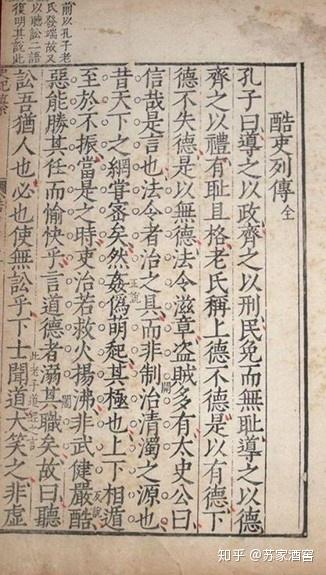 酷吏列傳 全
孔子曰導之以政齊之以刑民免而無耻導之以德
齊之以禮有耻且格老氏稱上德不德是以有德下
德不失德是以無德法令滋章盜賊多有太史公曰
信哉是言也法令者治之具而非制治清濁之源也
開
昔天下之網嘗密矣然姦偽萌起其極也上下相遁
正說
至於不振當是之時吏治若救火揚沸非武健嚴酷
惡能勝其任而愉快乎言道德者溺其職矣故曰聽
訟吾猶人也必也使無訟乎下士聞道大笑之非虛
此老子道經之言
前以孔子老
氏發端故又
以聽訟二語
復明其說此
知乎 @苏家酒窖